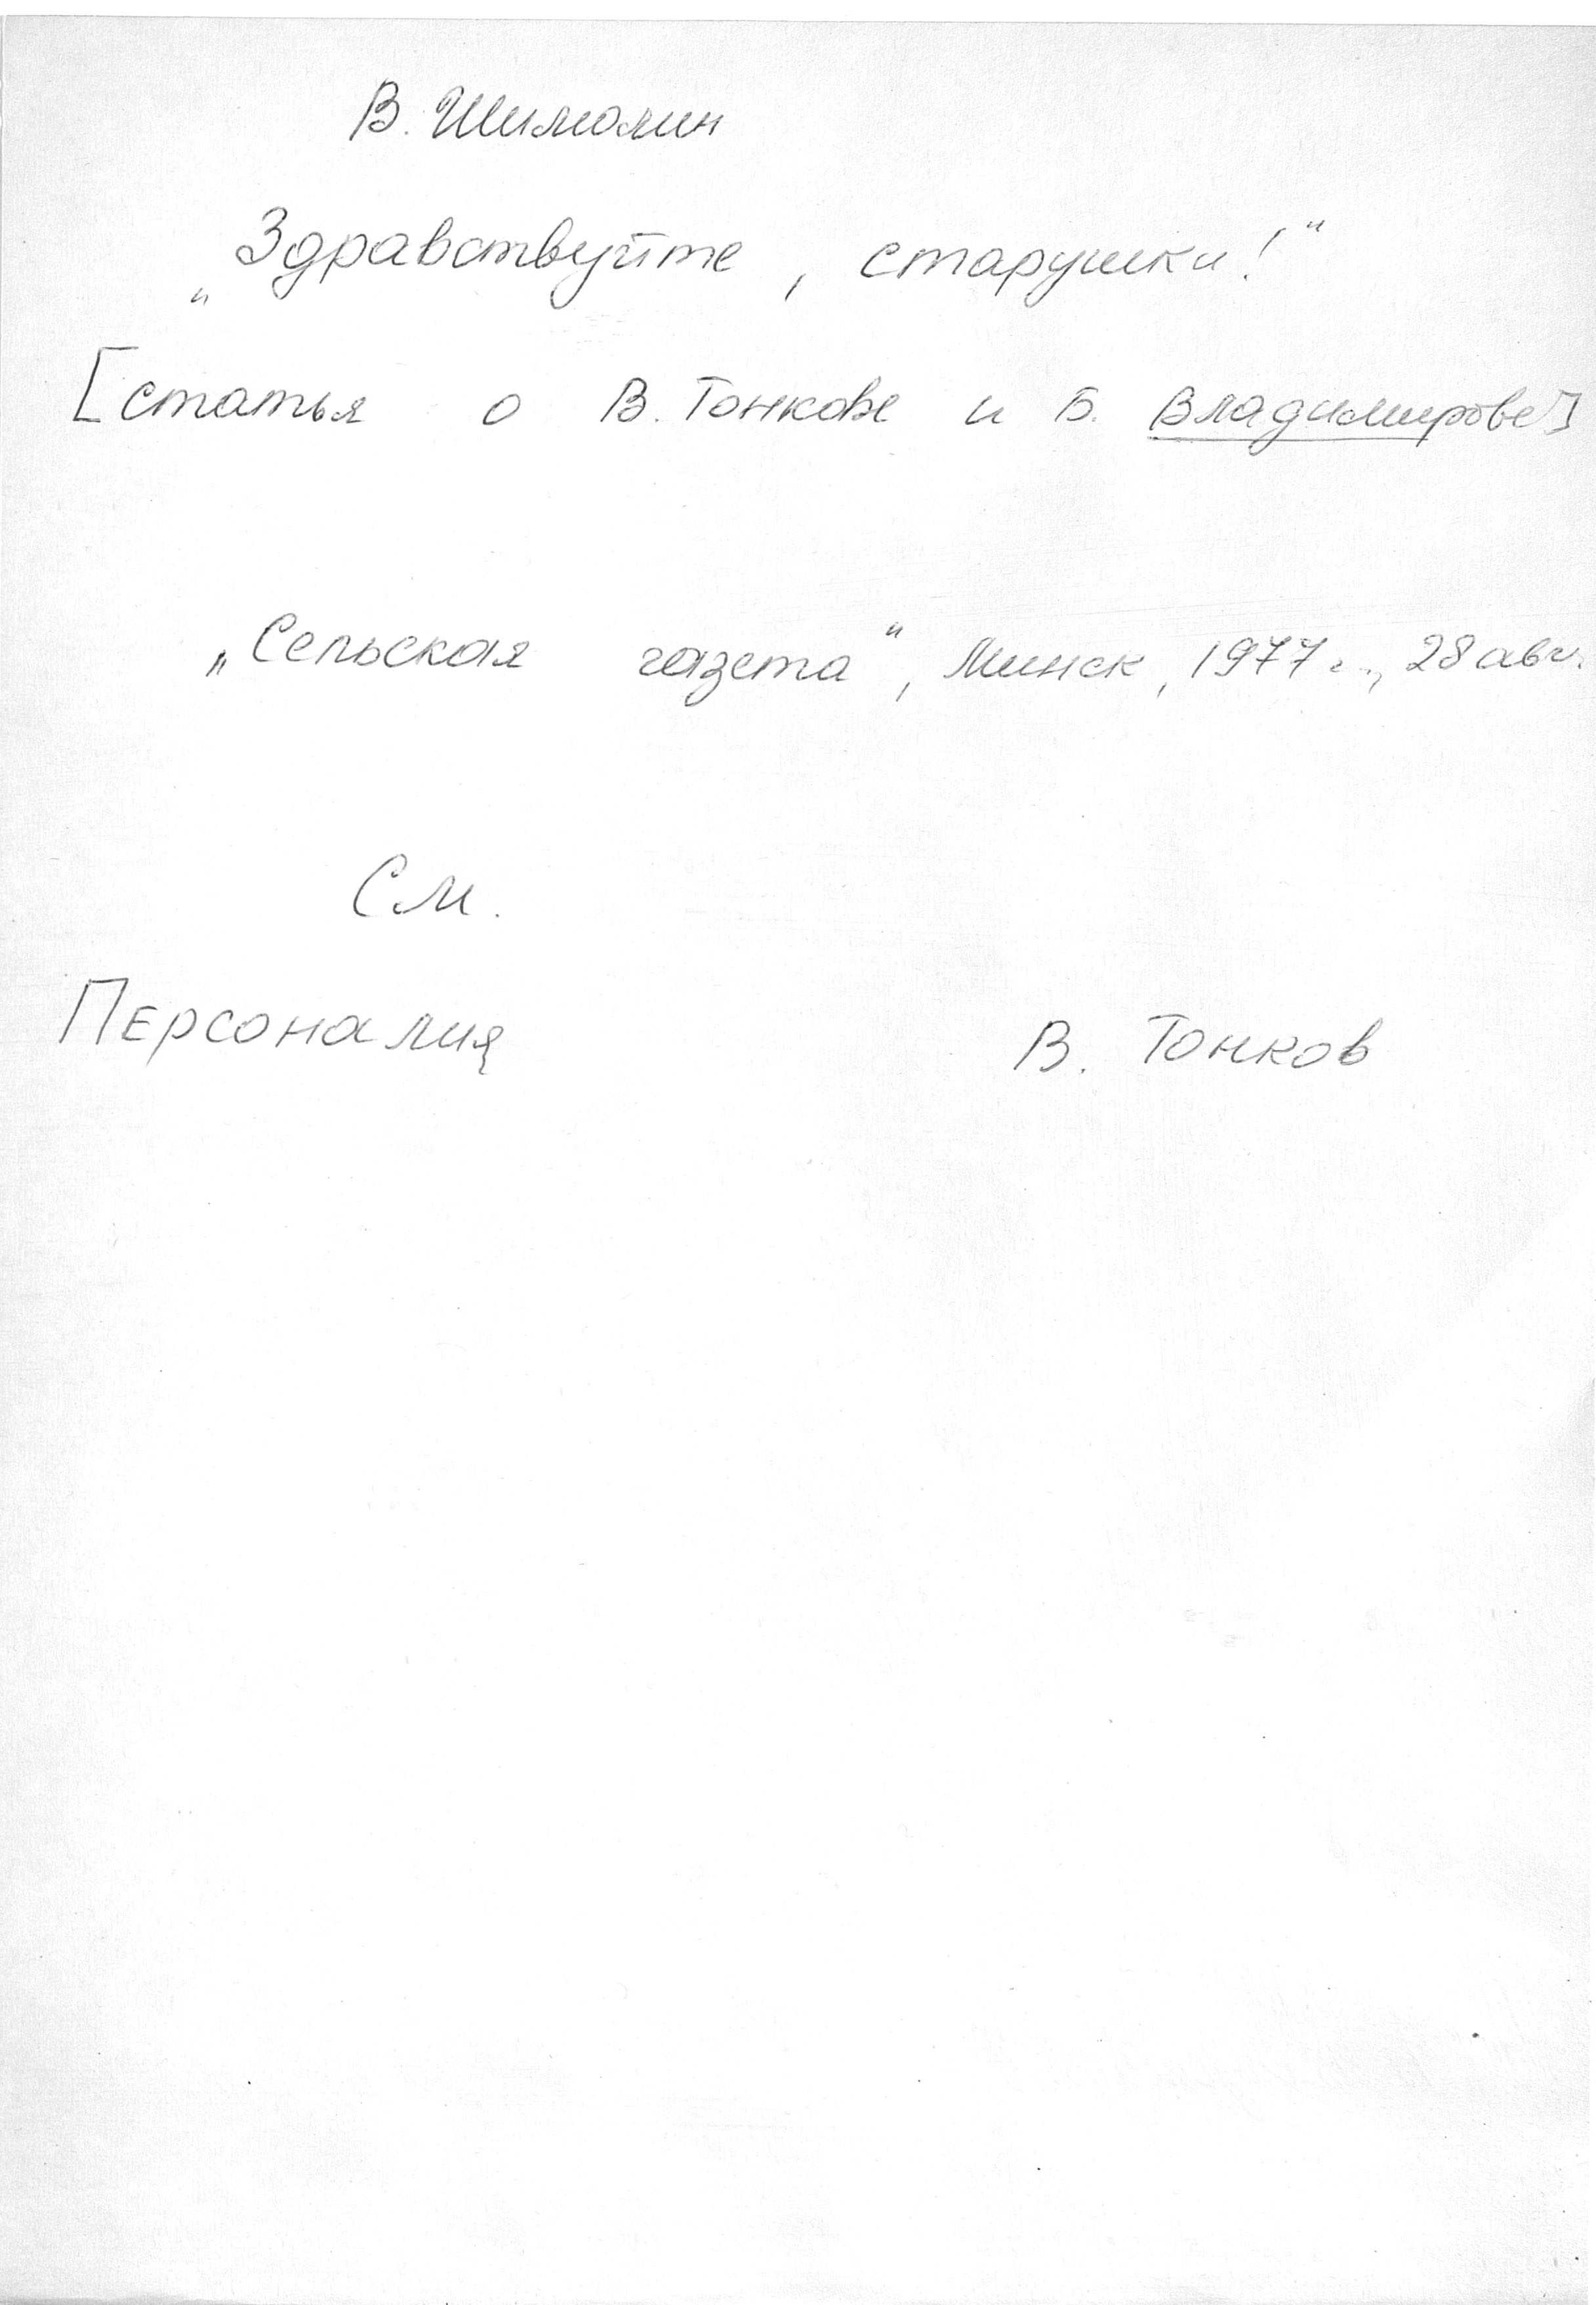 В. Шимолин
„Здравствуйте, старушки!“
[статья о В. Тонкове и Б. Владимирове]
„Сельская газета“, Минск, 1977 г., 28 авг.
См.
Персоналия В. Тонков